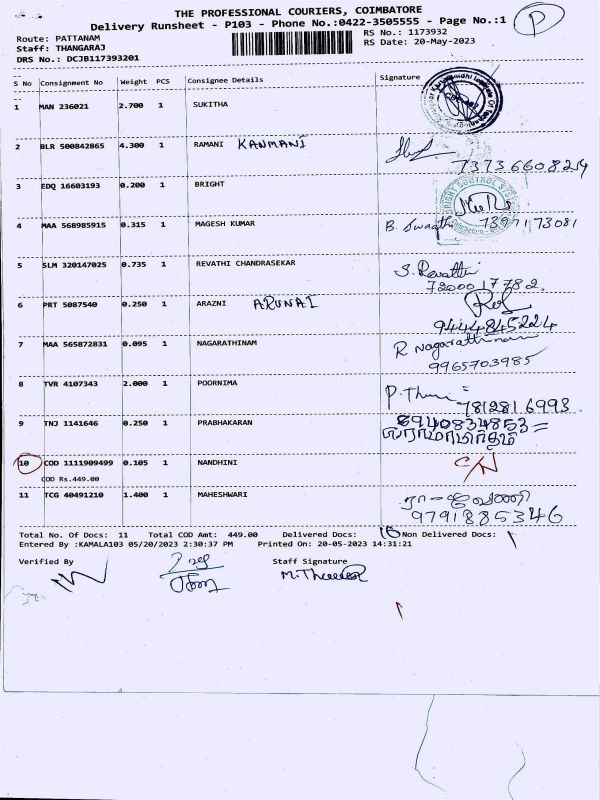 THE PROFESSIONAL COURIERS, COIMBATORE
Delivery Runsheet - P103 - Phone No.:0422-3505555 - Page No.:1 P
Route: PATTANAM RS No.: 1173932
Staff: THANGARAJ RS Date: 20-May-2023
DRS No.: DCJB117393201
S No Consignment No Weight PCS Consignee Details Signature
1 MAN 236021 2.700 1 SUKITHA
2 BLR 500842865 4.300 1 RAMANI KANMANI
3 EDQ 16603193 0.200 1 BRIGHT
BRIGHT CONTROL
4 MAA 568985915 0.315 1 MAGESH KUMAR B. Swaathi 7397173081
5 SLM 320147025 0.735 1 REVATHI CHANDRASEKAR S. Revathi
7200017782.
6 PRT 5087540 0.250 1 ARAZNI ARUNAI
9444845224
7 MAA 565872831 0.095 1 NAGARATHINAM R Nagarathinam
9965703985
8 TVR 4107343 2.000 1 POORNIMA
7812816993
9 TNJ 1141646 0.250 1 PRABHAKARAN 8940834853
10 COD 1111909499 0.105 1 NANDHINI C/N
COD Rs.449.00
11 TCG 40491210 1.400 1 MAHESHWARI
9791885346
Total No. Of Docs: 11 Total COD Amt: 449.00 Delivered Docs: 10 Non Delivered Docs: 1
Entered By :KAMALA103 05/20/2023 2:30:37 PM Printed On: 20-05-2023 14:31:21
Verified By Staff Signature